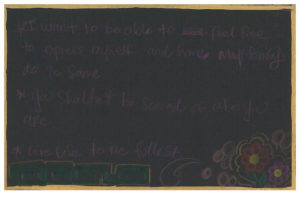 I want to be able to feel free
to express myself and have my family
do the same
* You shall not be scared of who you
are
* Live life to the fullest